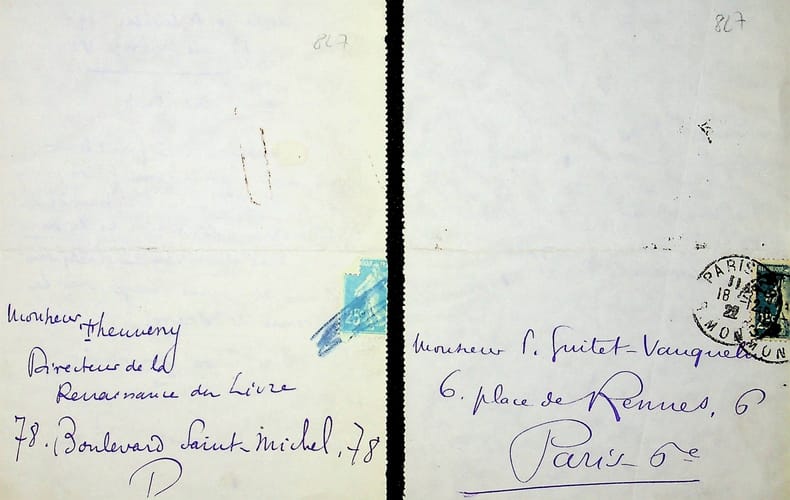 847
25
Monsieur Theuveny
Directeur de la
Renaissance du Livre
78. Boulevard Saint-Michel, 78
847
PARIS
18
22
25
Monsieur P. Guitet-Vauquelin
6. place de Rennes, 6
Paris-6e